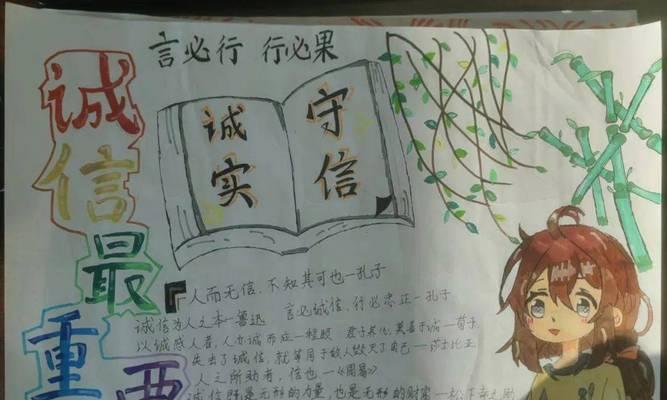 言必行 行必果
诚信最重要
诚实
守信
人而无信,不知其可也—孔子
言必诚信,行必忠正—孔子
诚信为人之本—鲁迅
以诚感人者,人亦诚而应—程颐 君子养心,莫善于诚—荀子
失去了诚信,就等同于敌人毁灭了自己—莎士比亚
人之所助者,信也—《周易》
诚信既是无形的力量,也是无形的财富—松下幸之助